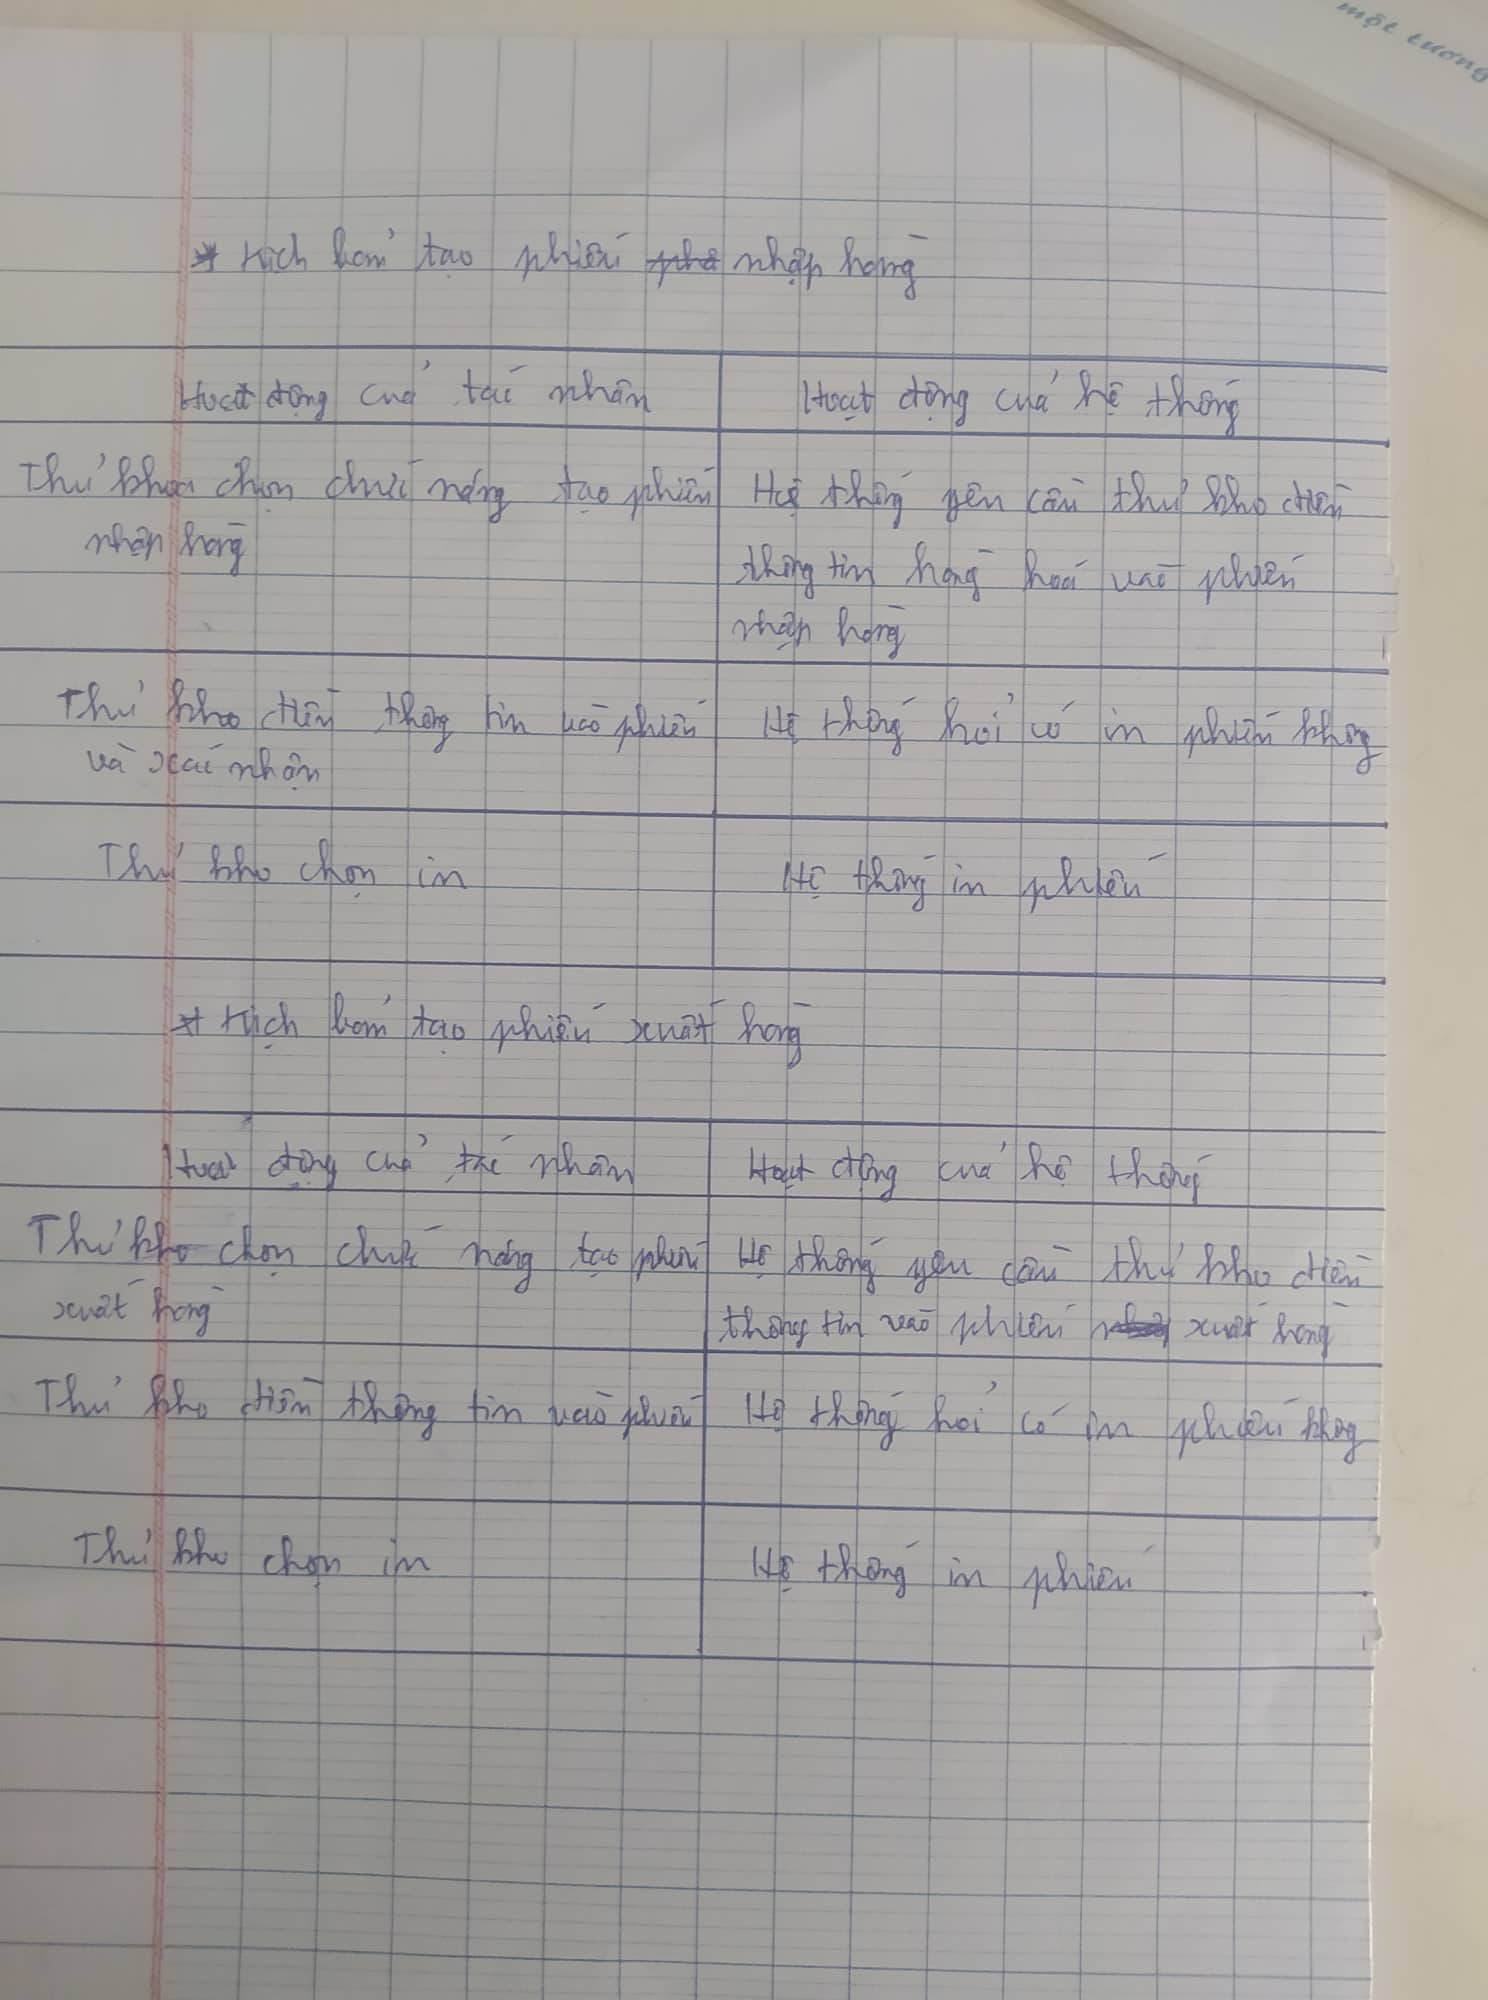 một tương
* Kịch bản tạo phiếu nhập hàng
Hoạt động của tác nhân
Hoạt động của hệ thống
Thủ kho chọn chức năng tạo phiếu
nhập hàng
Hệ thống yêu cầu thủ kho điền
thông tin hàng hoá vào phiếu
nhập hàng
Thủ kho điền thông tin vào phiếu
và xác nhận
Hệ thống hỏi có in phiếu không
Thủ kho chọn in
Hệ thống in phiếu
* Kịch bản tạo phiếu xuất hàng
Hoạt động của tác nhân
Hoạt động của hệ thống
Thủ kho chọn chức năng tạo phiếu
xuất hàng
Hệ thống yêu cầu thủ kho điền
thông tin vào phiếu xuất hàng
Thủ kho điền thông tin vào phiếu
Hệ thống hỏi có in phiếu không
Thủ kho chọn in
Hệ thống in phiếu